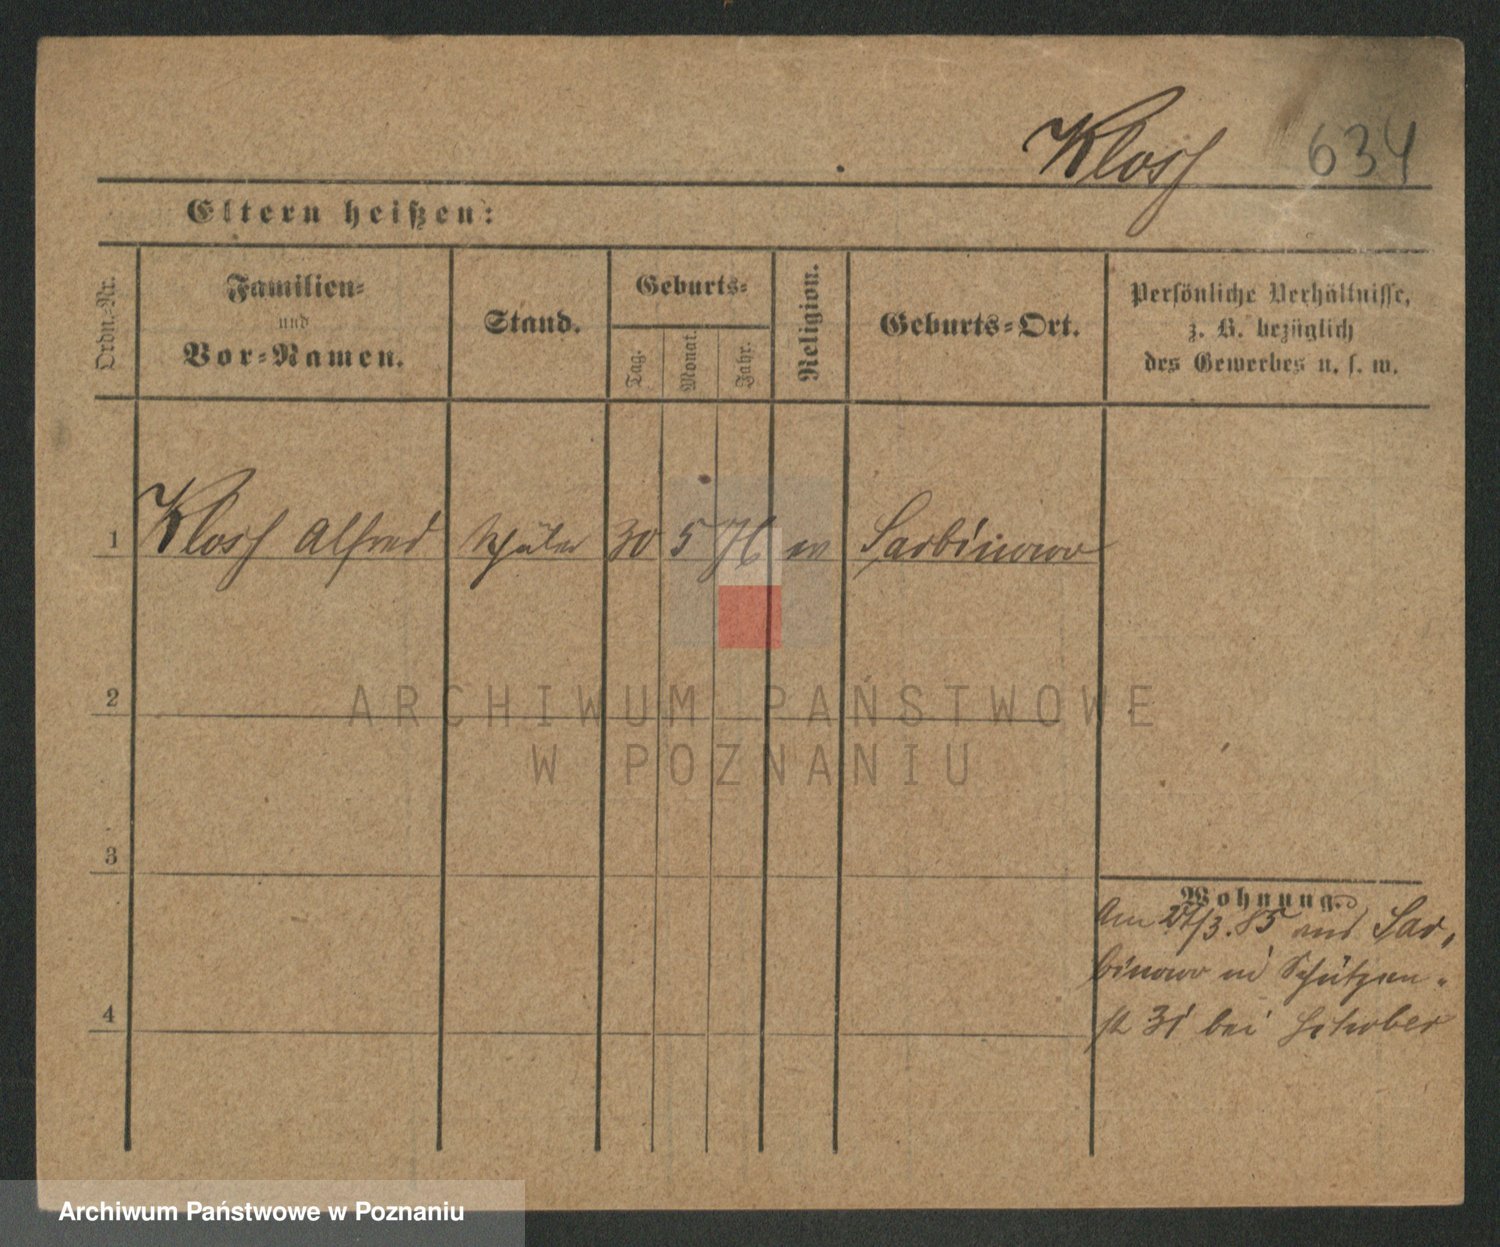 Klosch 634
Eltern heißen:
Ordn.-Nr.
Familien-
und
Vor-Namen.
Stand.
Geburts-
Tag.
Monat.
Jahr.
Religion.
Geburts-Ort.
Persönliche Verhältnisse,
z. B. bezüglich
des Gewerbes u. s. w.
1 Klosch Alfred Schüler 30 5 76 ev Sarbinowo
2
ARCHIWUM PAŃSTWOWE
W POZNANIU
3
Wohnung.
Am 27/3. 85 aus Sar-
binowo in Schützen-
st 31 bei
4
Archiwum Państwowe w Poznaniu